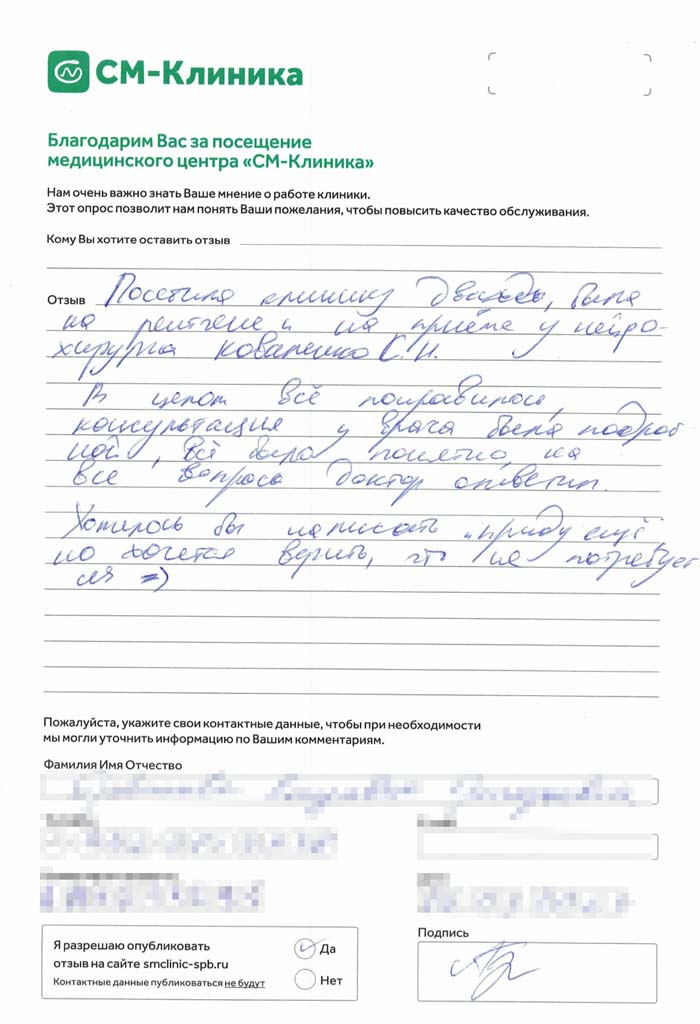 СМ-Клиника
Благодарим Вас за посещение
медицинского центра «СМ-Клиника»
Нам очень важно знать Ваше мнение о работе клиники.
Этот опрос позволит нам понять Ваши пожелания, чтобы повысить качество обслуживания.
Кому Вы хотите оставить отзыв
Отзыв Посетила клинику дважды, была
на рентгене и на приёме у нейро-
хирурга Коваленко С.Н.
В целом всё понравилось,
консультация у врача была подроб
ной, всё было понятно, на
все вопросы доктор ответил.
Хотелось бы написать "приду ещё"
но хочется верить, что не потребует
ся =)
Пожалуйста, укажите свои контактные данные, чтобы при необходимости
мы могли уточнить информацию по Вашим комментариям.
Фамилия Имя Отчество
Я разрешаю опубликовать
отзыв на сайте smclinic-spb.ru
Контактные данные публиковаться не будут
Да
Нет
Подпись